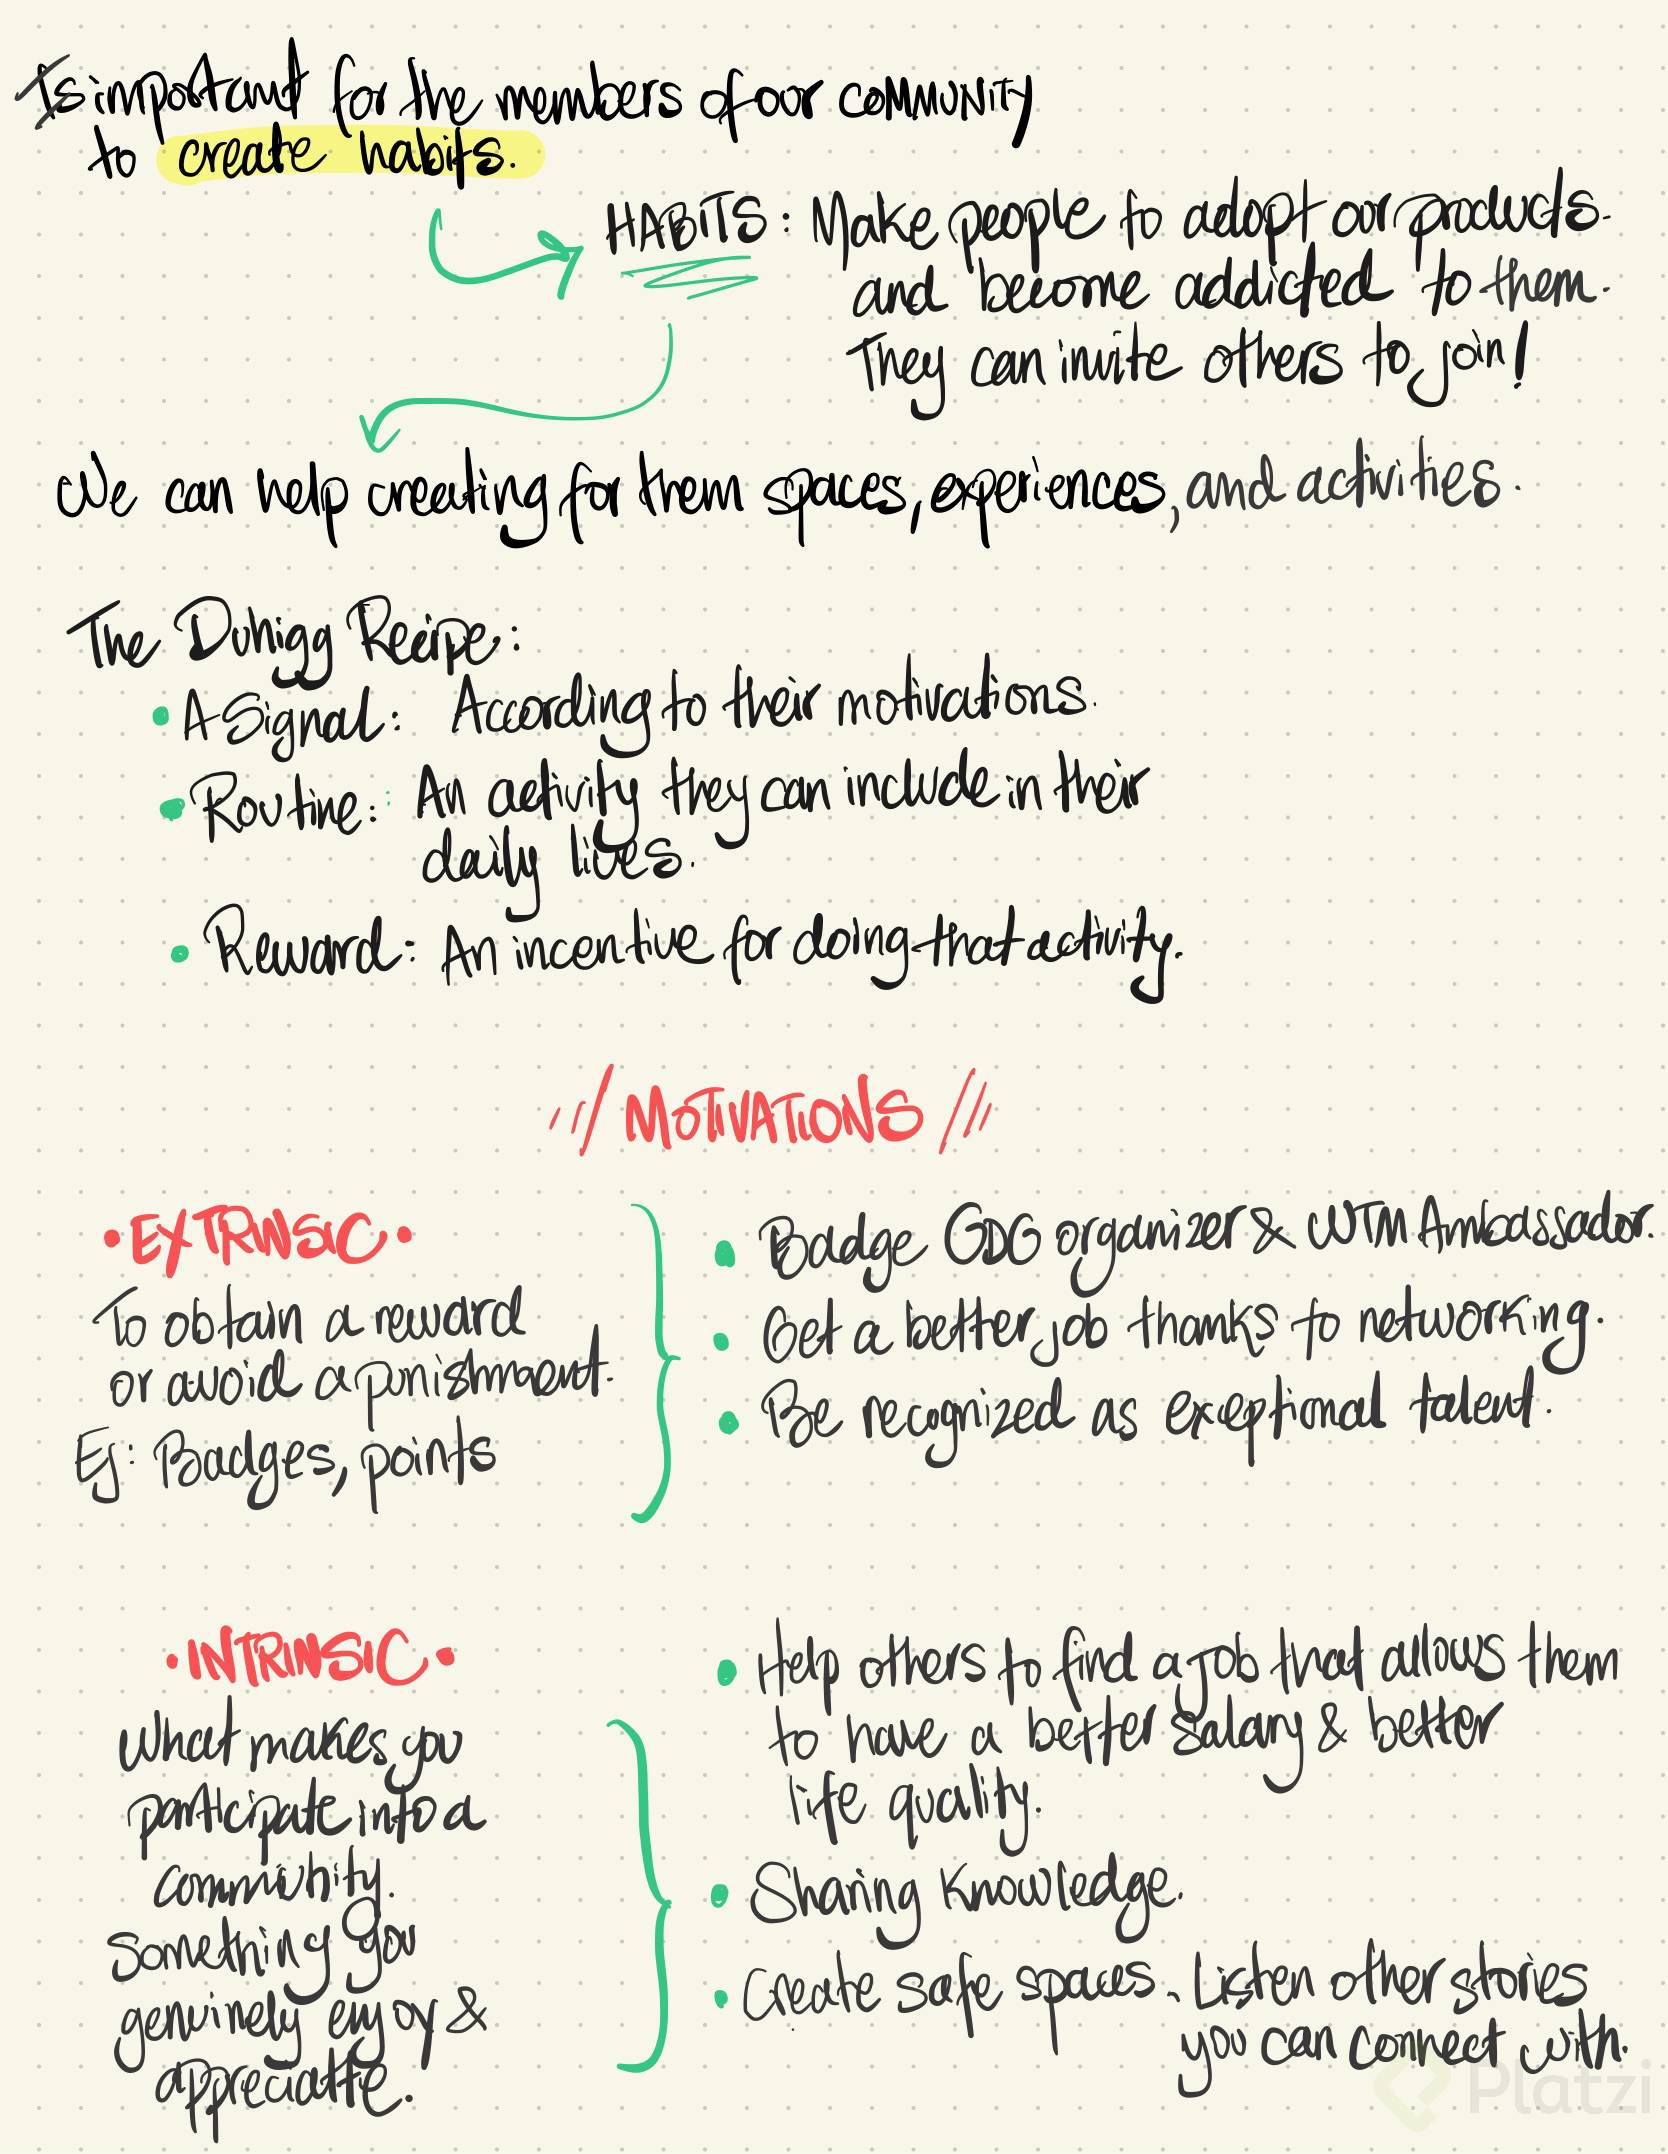 Is important for the members of our community
to create habits.
HABITS: Make people to adopt our products
and become addicted to them.
They can invite others to join!
We can help creating for them spaces, experiences, and activities.
The Duhigg Recipe:
• A Signal: According to their motivations.
• Routine: An activity they can include in their
daily lives.
• Reward: An incentive for doing that activity.
MOTIVATIONS
• EXTRINSIC •
To obtain a reward
or avoid a punishment.
Ej: Badges, points
• Badge GDG organizer & WTM Ambassador.
• Get a better job thanks to networking.
• Be recognized as exceptional talent.
• INTRINSIC •
What makes you
participate into a
community.
Something you
genuinely enjoy &
appreciatte.
• Help others to find a job that allows them
to have a better salary & better
life quality.
• Sharing knowledge.
• Create safe spaces. Listen other stories
you can connect with.
Platzi